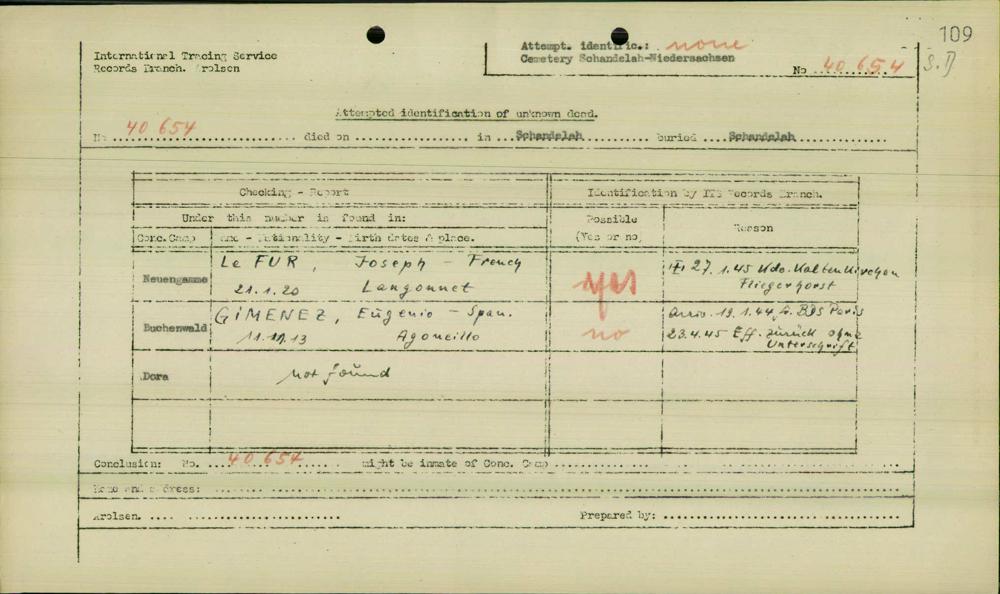 109
S. D
International Tracing Service
Records Branch. Arolsen
Attempt. identific.: none
Cemetery Schandelah-Niedersachsen
No ..40 654
Attempted identification of unknown dead.
No 40 654 died on in Schandelah buried Schandelah
Checking - Report
Identification by ITS Records Branch.
Under this number is found in:
Possible
(Yes or no)
Reason
Conc.Camp
Name - Nationality - Birth dates & place.
Neuengamme
Le FUR, Joseph - French
21.1.20 Langonnet
yes
27.1.45 Kdo. Kaltenkirchen
Fliegerhorst
Buchenwald
GIMENEZ, Eugenio - Span.
Agoncillo
no
arriv. 19.1.44 BDS Paris
23.4.45 Eff. zurück ohne
Unterschrift
Dora
not found
Conclusion: No. 40 654 might be inmate of Conc. Camp
Name and address:
Arolsen.
Prepared by: